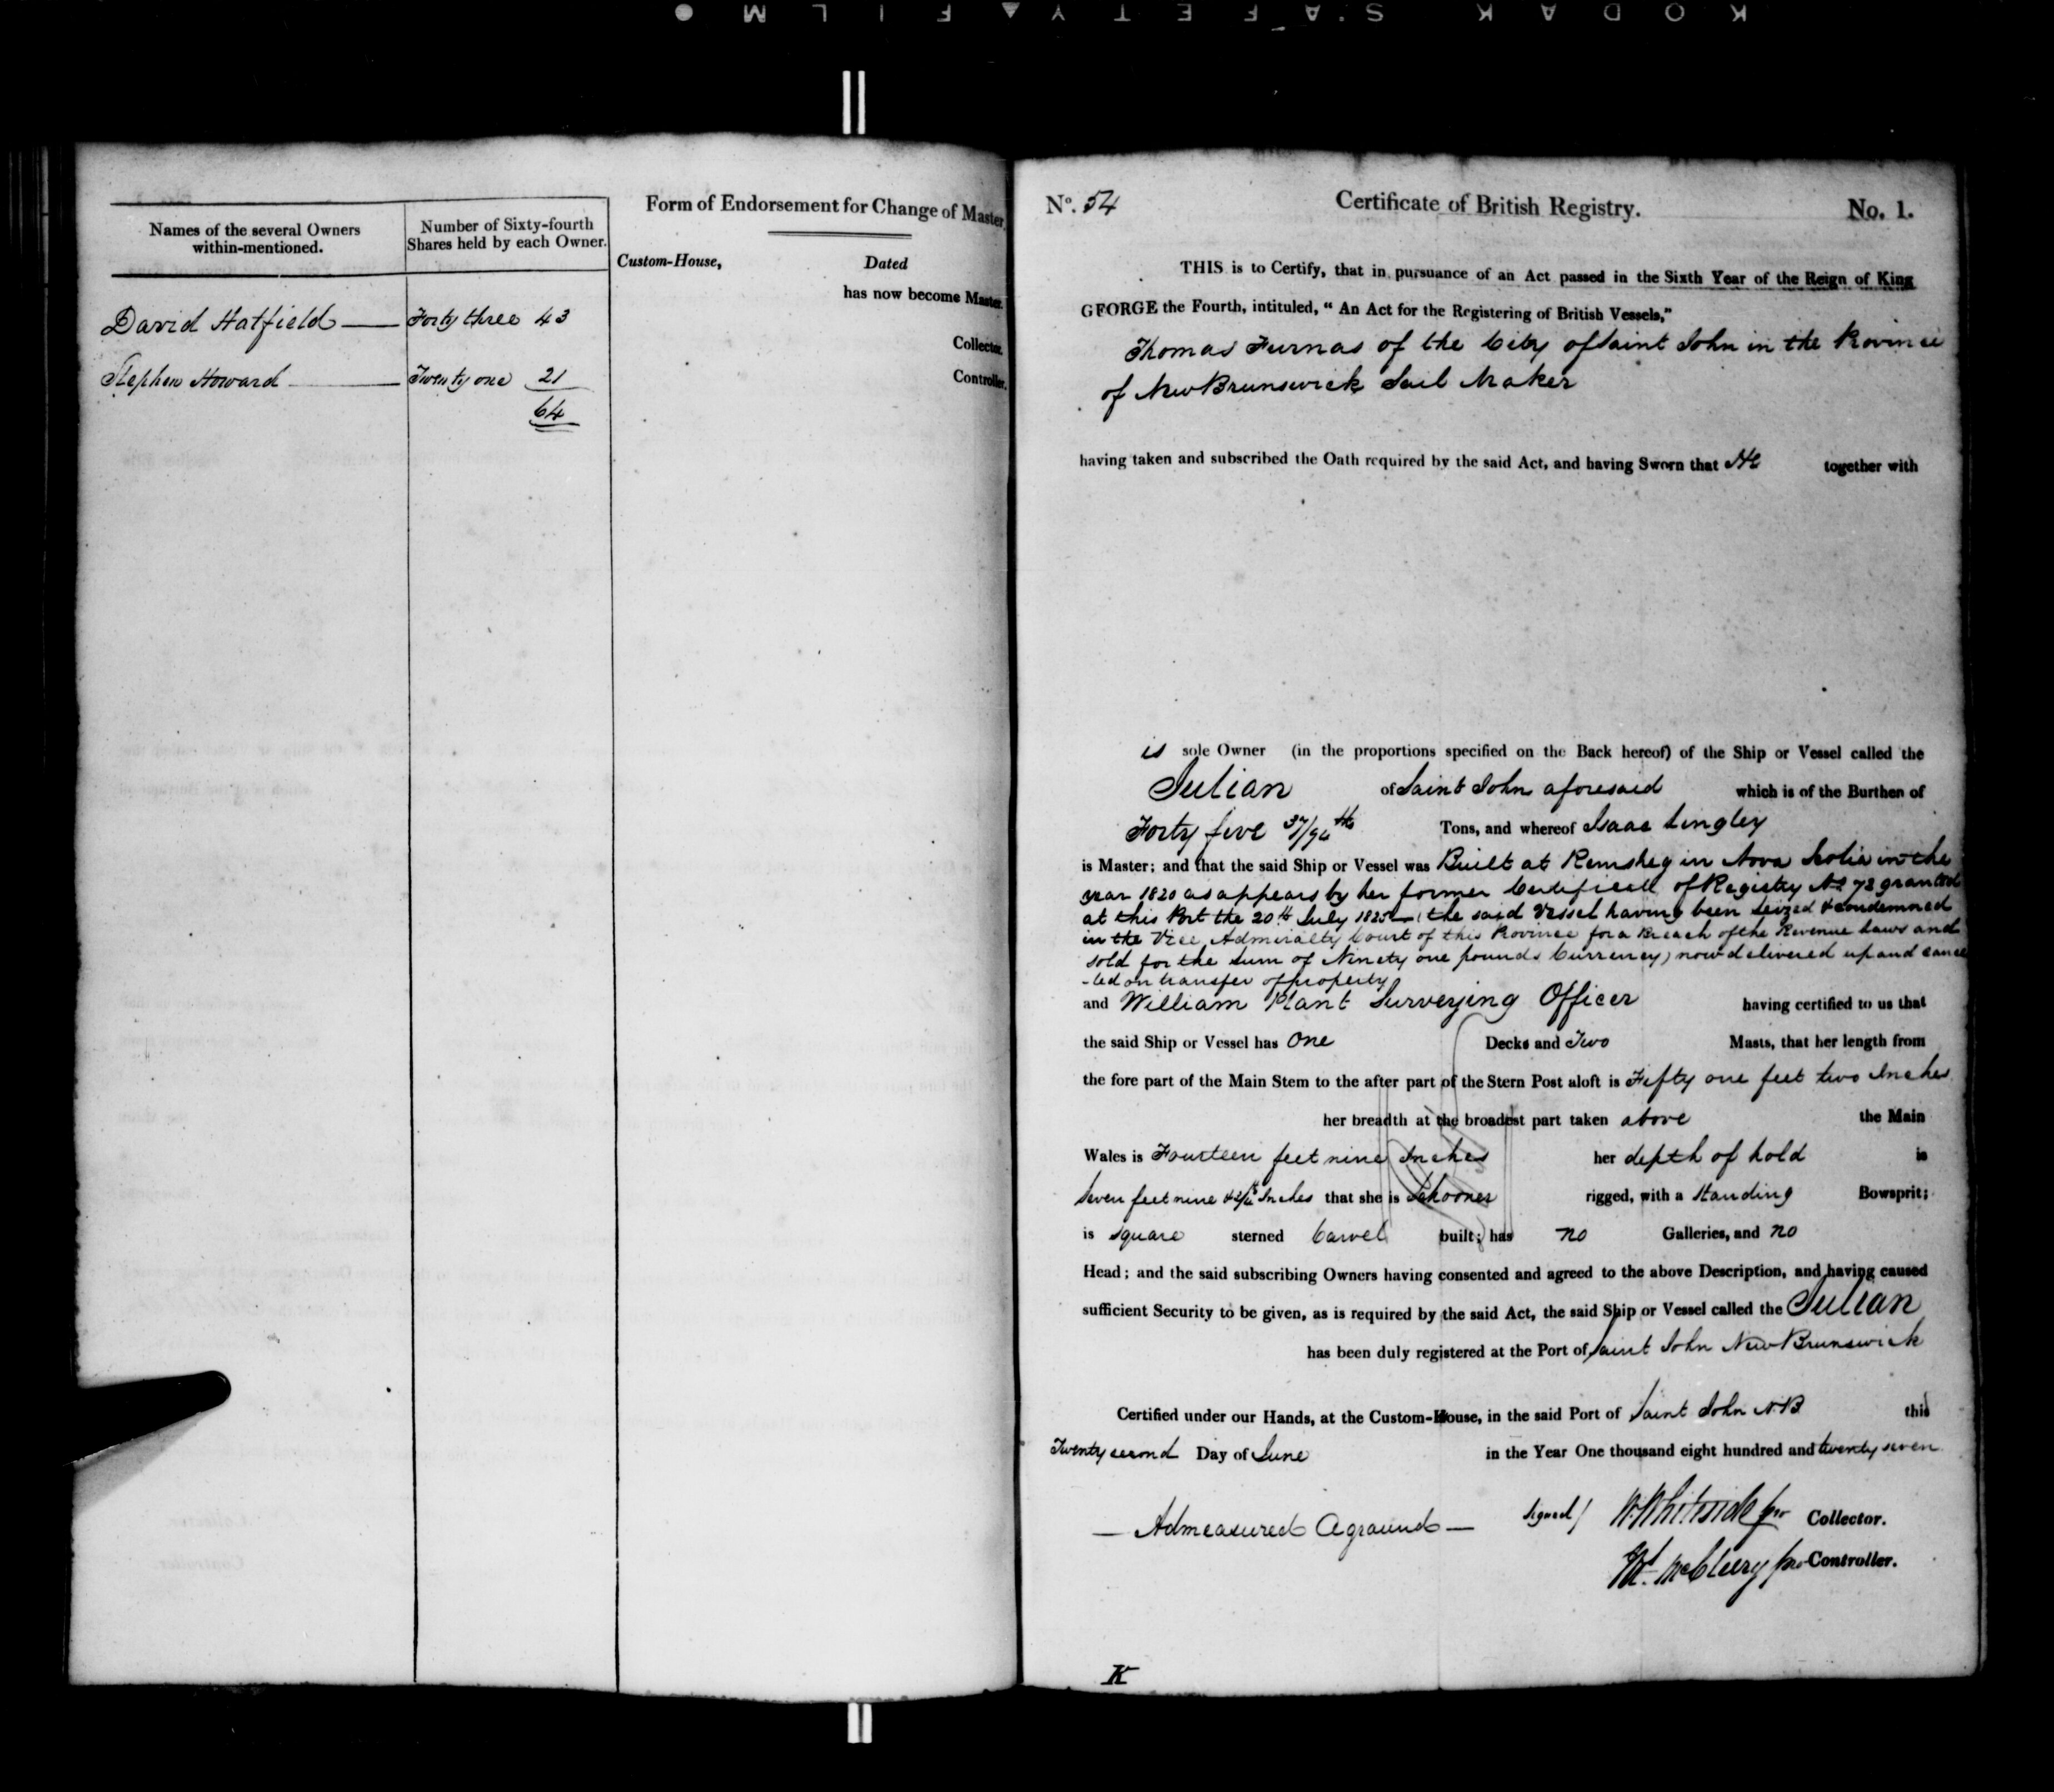 KODAK SAFETY FILM
Names of the several Owners within-mentioned.
Number of Sixty-fourth Shares held by each Owner.
David Hatfield — Forty three 43
Stephen Howard — Twenty one 21
64
Form of Endorsement for Change of Master.
Custom-House, Dated
has now become Master.
Collector.
Controller.
No. 54 Certificate of British Registry. No. 1.
THIS is to Certify, that in pursuance of an Act passed in the Sixth Year of the Reign of King
GEORGE the Fourth, intituled, “ An Act for the Registering of British Vessels,”
Thomas Furnas of the City of Saint John in the Province
of New Brunswick Sail Maker
having taken and subscribed the Oath required by the said Act, and having Sworn that He together with
is sole Owner (in the proportions specified on the Back hereof) of the Ship or Vessel called the
Julian of Saint John aforesaid which is of the Burthen of
Forty five 37/94th Tons, and whereof Isaac Lingley
is Master; and that the said Ship or Vessel was Built at Remsheg in Nova Scotia in the
year 1820 as appears by her former Certificate of Registry No 72 granted
at this Port the 20th July 1825 (the said Vessel having been Seized & condemned
in the Vice Admiralty Court of this Province for a Breach of the Revenue Laws and
sold for the sum of Ninety one pounds Currency) now delivered up and cancel
-led on transfer of property
and William Plant Surveying Officer having certified to us that
the said Ship or Vessel has One Decks and Two Masts, that her length from
the fore part of the Main Stem to the after part of the Stern Post aloft is Fifty one feet two Inches
her breadth at the broadest part taken above the Main
Wales is Fourteen feet nine Inches her depth of hold is
Seven feet nine & Inches that she is Schooner rigged, with a Standing Bowsprit;
is square sterned Carvel built; has no Galleries, and no
Head; and the said subscribing Owners having consented and agreed to the above Description, and having caused
sufficient Security to be given, as is required by the said Act, the said Ship or Vessel called the Julian
has been duly registered at the Port of Saint John New Brunswick
Certified under our Hands, at the Custom-House, in the said Port of Saint John N.B. this
Twenty second Day of June in the Year One thousand eight hundred and twenty seven
— Admeasured Aground — Signed/ Whiteside pro Collector.
McCleery pro Controller.
K